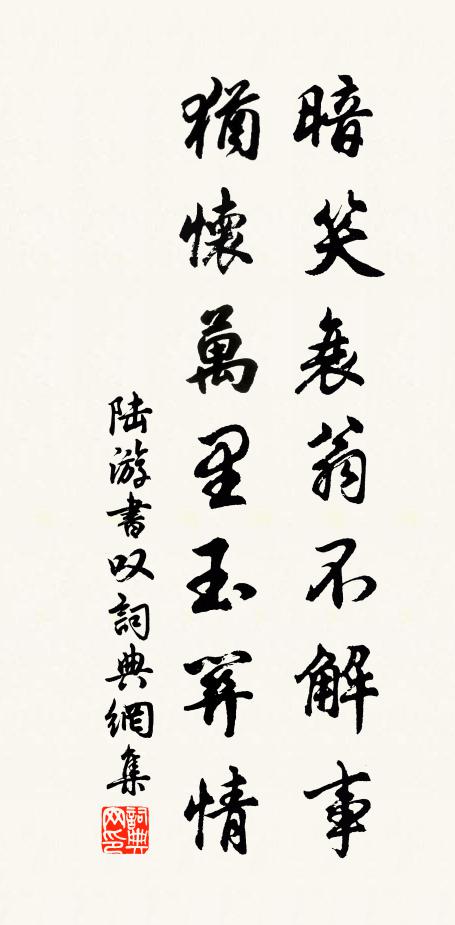 暗笑衰翁不解事
猶懷萬里玉關情
陆游書叹詞典網集
詞典网印